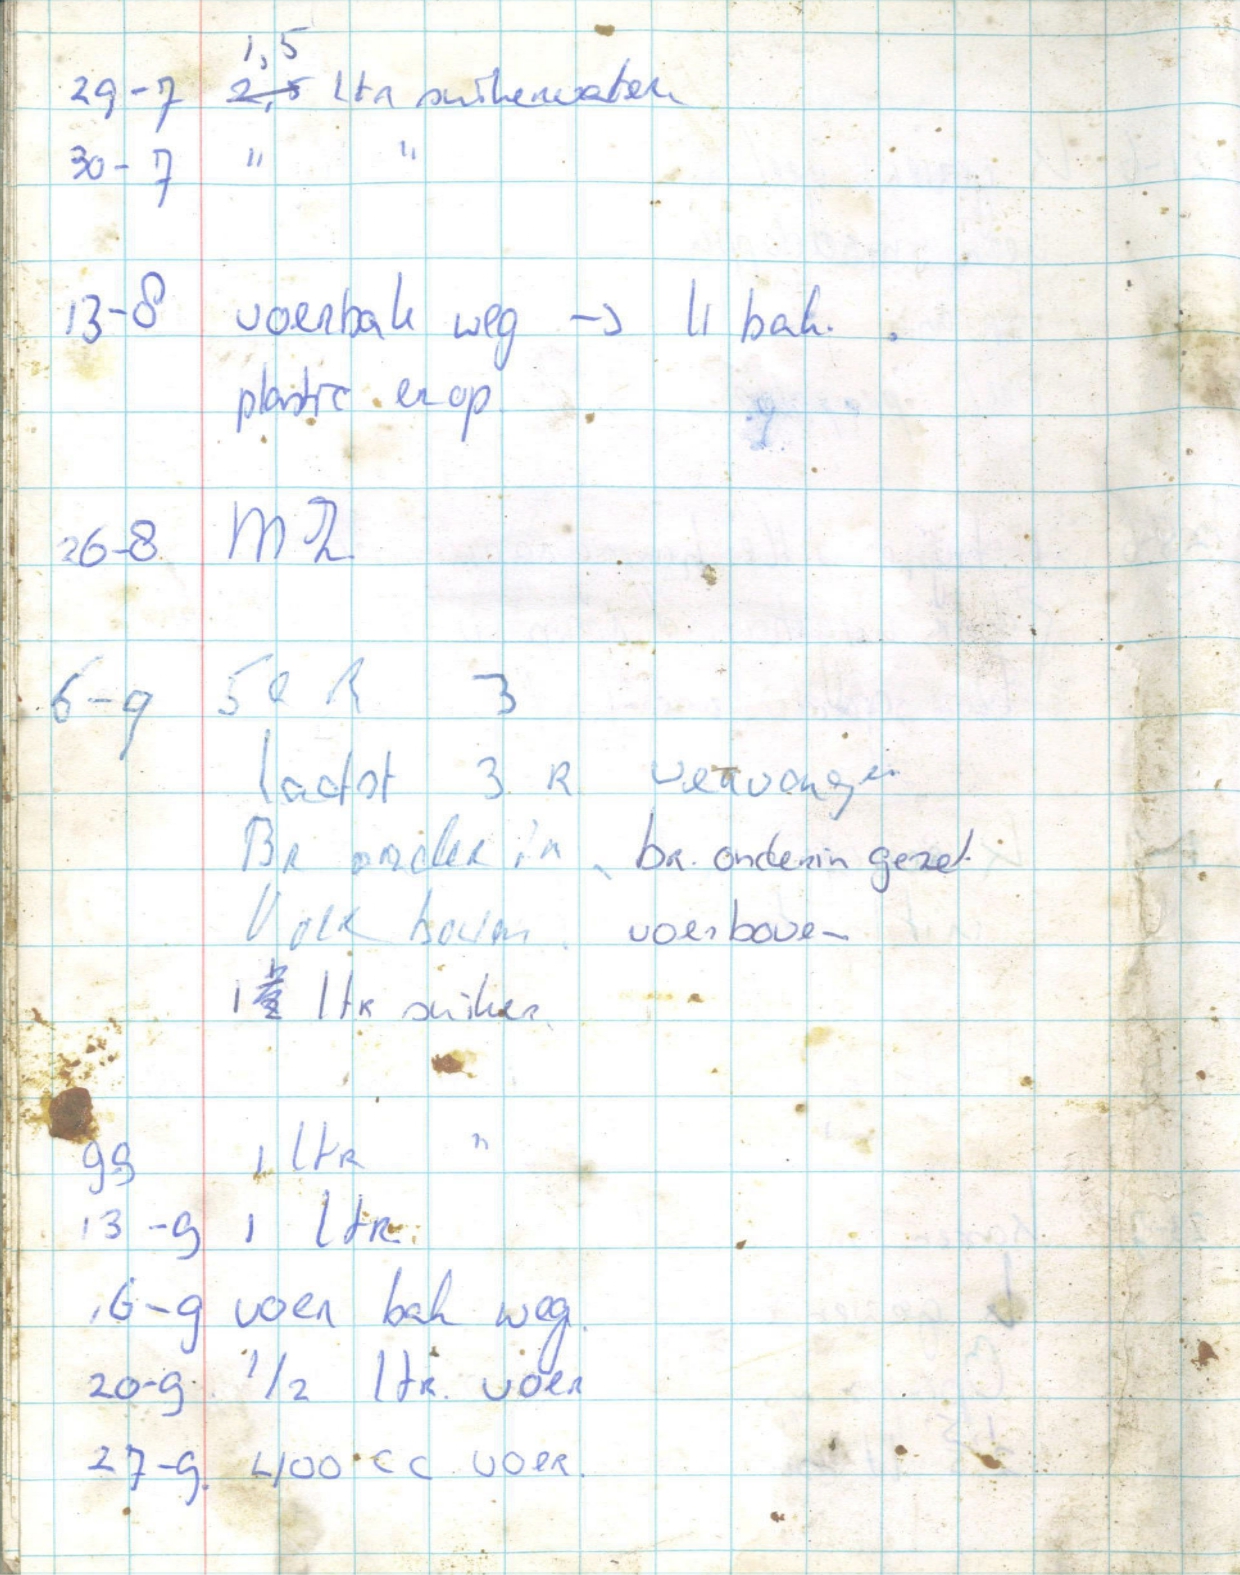 1,5
29-7 2,5 ltr suikerwater
30-7 " "
13-8 voerbak weg → 11 bak.
plastic erop
26-8 MZ
6-9 5e R 3
laatst 3 R vervangen
Br onder in, br. onderin gezet
Volk boven. voer boven
1 ltr suiker
99 1 ltr "
13-9 1 ltr.
16-9 voer bak weg.
20-9. 1/2 ltr. voer
27-9. 400 cc voer.